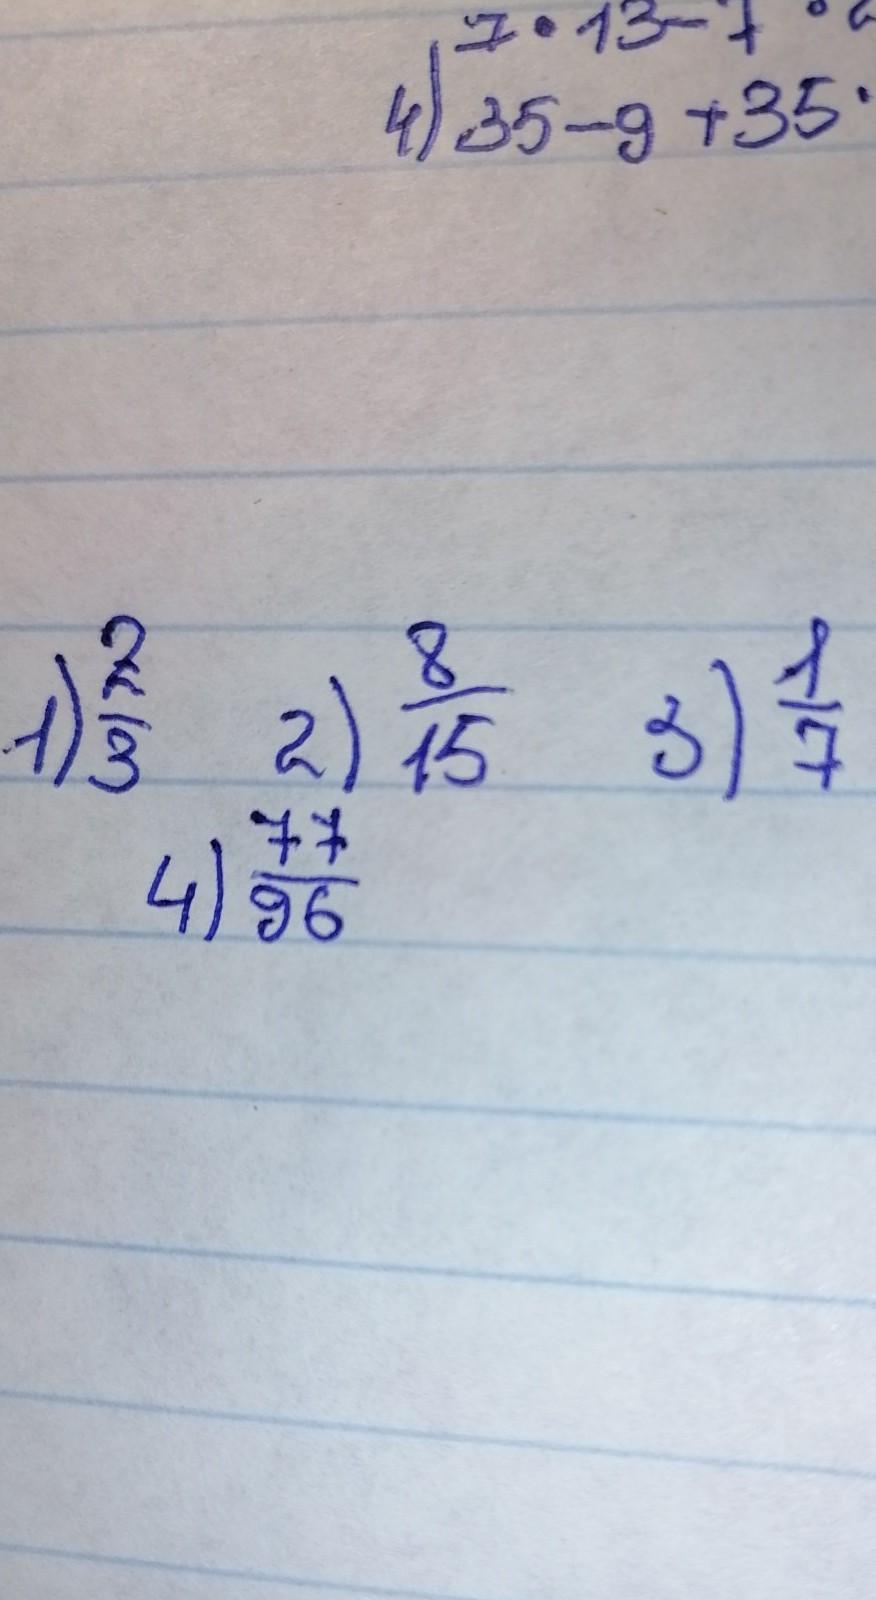 7 • 13 - 7 •
4) 35 - 9 + 35 •
1) 2/3 2) 8/15 3) 1/7
4) 77/96